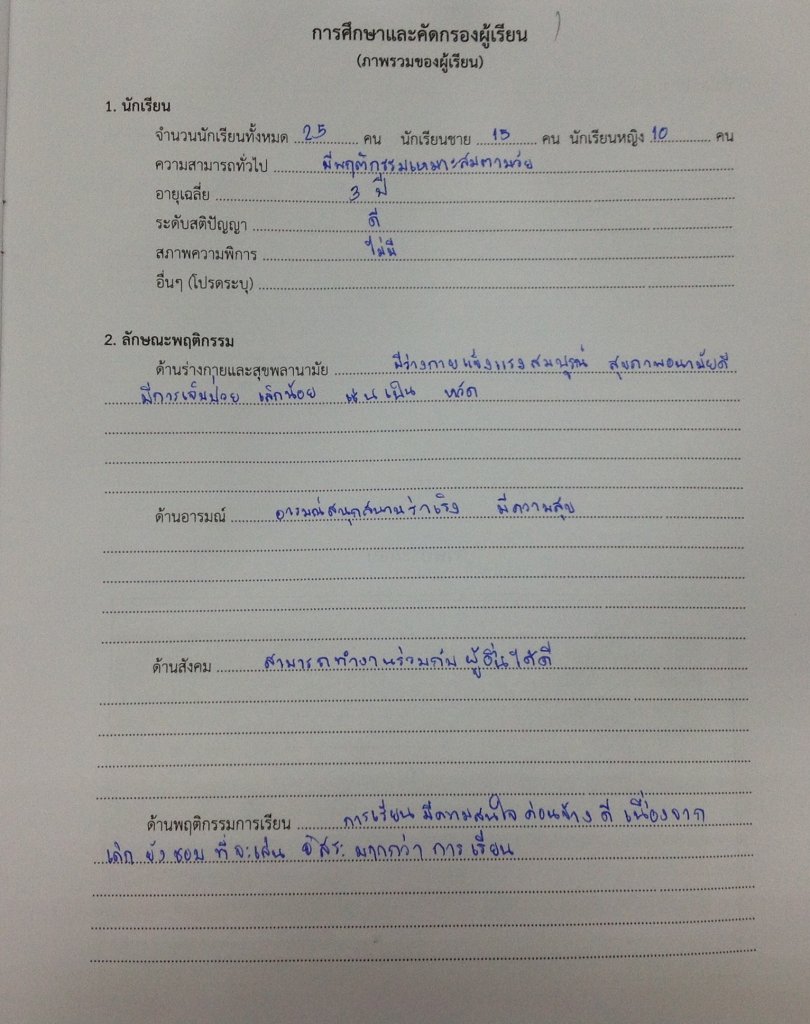 การศึกษาและคัดกรองผู้เรียน
(ภาพรวมของผู้เรียน)
1. นักเรียน
จำนวนนักเรียนทั้งหมด 25 คน นักเรียนชาย 15 คน นักเรียนหญิง 10 คน
ความสามารถทั่วไป มีพฤติกรรมเหมาะสมตามวัย
อายุเฉลี่ย 3 ปี
ระดับสติปัญญา ดี
สภาพความพิการ ไม่มี
อื่นๆ (โปรดระบุ)
2. ลักษณะพฤติกรรม
ด้านร่างกายและสุขพลานามัย มีร่างกายแข็งแรงสมบูรณ์ สุขภาพอนามัยดี
มีการเจ็บป่วย เล็กน้อย เช่น เป็น หวัด
ด้านอารมณ์ อารมณ์สนุกสนานร่าเริง มีความสุข
ด้านสังคม สามารถทำงานร่วมกับ ผู้อื่นได้ดี
ด้านพฤติกรรมการเรียน การเรียน มีความสนใจ ค่อนข้าง ดี เนื่องจาก
เด็ก ยัง ชอบ ที่ จะเล่น อิสระ มากกว่า การ เรียน